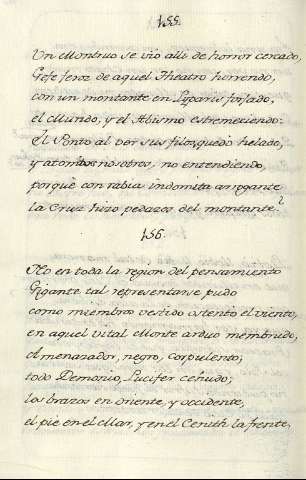 155.
Un Monstruo se vio alli de horror cercado,
Gefe feroz de aquel Theatro horrendo,
con un montante en Lyparis forjado,
el Mundo, y el Abismo estremeciendo:
El Ponto al ver sus filos quedo helado,
y atonitos nosotros, no entendiendo,
porque con rabia indomita arrogante
la Cruz hizo pedazos del montante?
156.
No en toda la region del pensamiento
Gigante tal representarse pudo
como miembros vestido ostentó el viento,
en aquel vital Monte arduo membrudo,
Amenazador, negro, corpulento;
todo Demonio, Lucifer ceñudo;
los brazos en oriente, y occidente,
el pie en el Mar, y en el Cenith la frente,